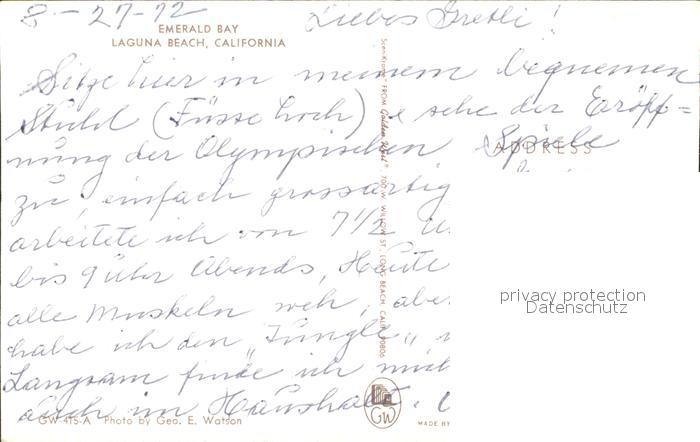 8-27-72
Liebes Gretli!
EMERALD BAY
LAGUNA BEACH, CALIFORNIA
Sitze hier in meinem bequemen
Stuhl (Füsse hoch) & sehe der Eröff=
nung der Olympischen Spiele
ADDRESS
zu, einfach grossartig
arbeitete ich von 7 1/2 U
bis 9 Uhr Abends, Heute
alle Muskeln weh, aber
habe ich den "Jungle"
Langsam finde ich mich
auch im Haushalt.
GW-415-A Photo by Geo. E. Watson
FROM "Golden West" 700 W. WILLOW ST., LONG BEACH, CALIF. 90806
GW
MADE BY
privacy protection
Datenschutz